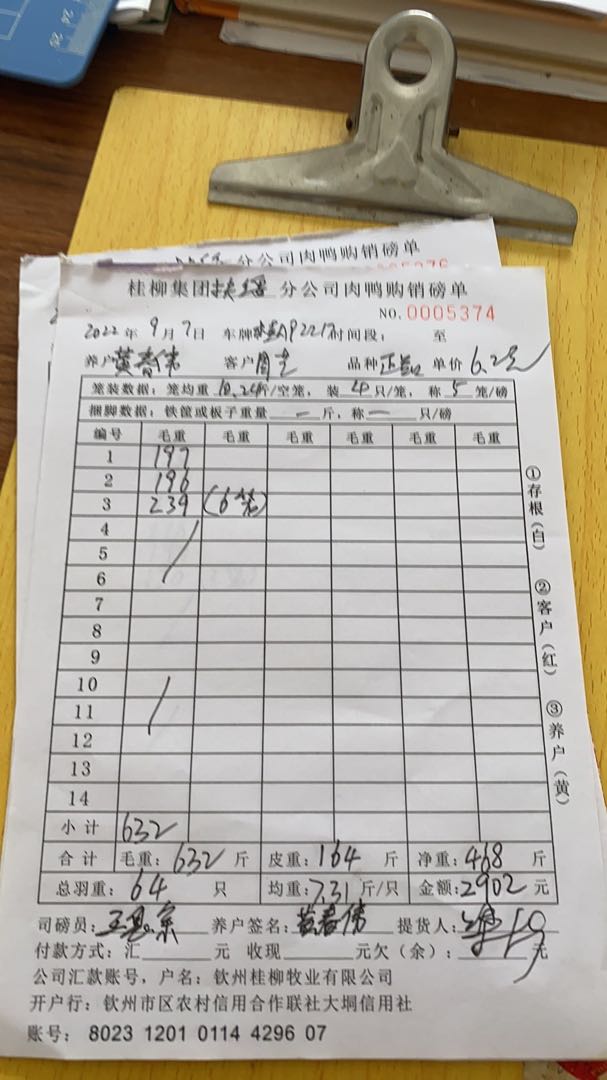 24
26
分公司肉鸭购销磅单
桂柳集团扶绥分公司肉鸭购销磅单
NO.0005374
2022年9月7日 车牌 时间段: 至
养户黄春伟 客户 品种正品 单价6.2元
笼装数据:笼均重10.24斤/空笼,装4只/笼,称5笼/磅
捆脚数据:铁筐或板子重量一斤,称一只/磅
编号 毛重 毛重 毛重 毛重 毛重 毛重
1 197
2 196
3 239 (6笼)
4
5
6
7
8
9
10
11
12
13
14
小计 632
合计 毛重:632斤 皮重:164斤 净重:468斤
总羽重:64只 均重:7.31斤/只 金额:2902元
司磅员: 养户签名:黄春伟 提货人:
付款方式:汇 元 收现 元欠(余): 元
公司汇款账号,户名:钦州桂柳牧业有限公司
开户行:钦州市区农村信用合作联社大垌信用社
账号: 8023 1201 0114 4296 07
①存根(白)
②客户(红)
③养户(黄)